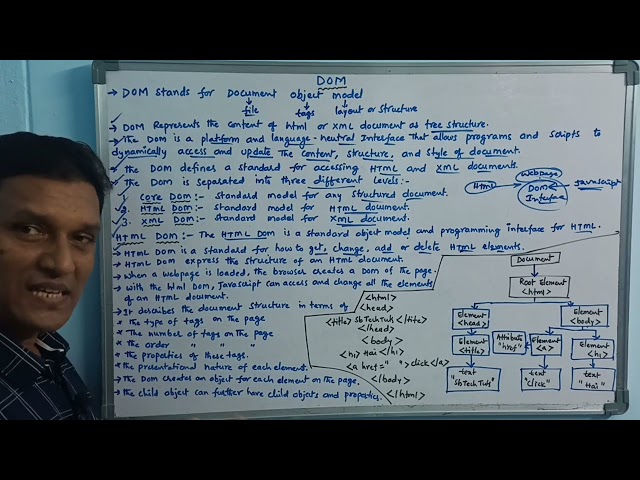 DOM
→ DOM stands for Document object model
file tags layout or structure
→ DOM Represents the content of html or xml document as tree structure.
→ The DOM is a platform and language-neutral Interface that allows programs and scripts to
dynamically access and update the content, structure, and style of document.
→ The DOM defines a standard for accessing HTML and XML documents.
→ The DOM is separated into three different levels:-
1. Core DOM:- standard model for any structured document.
2. HTML DOM:- standard model for HTML document.
3. XML DOM:- standard model for XML document.
Webpage
Html DOM Javascript
Interface
HTML DOM:- The HTML DOM is a standard object model and programming interface for HTML.
→ HTML DOM is a standard for how to get, change, add or delete HTML elements.
→ HTML DOM express the structure of an HTML document.
→ when a webpage is loaded, the browser creates a DOM of the page.
→ with the Html DOM, Javascript can access and change all the elements
of an HTML document.
→ It describes the document structure in terms of
* The type of tags on the page
* The number of tags on the page
* the order " "
* the properties of these tags.
* the presentational nature of each element.
→ The DOM creates an object for each element on the page.
→ the child object can further have child objects and properties.
<html>
<head>
<title> SbTechTuts </title>
</head>
<body>
<h1> Hai </h1>
<a href=" "> click </a>
</body>
</html>
Document
Root Element
<html>
Element
<head>
Element
<body>
Element
<title>
Attribute
"href"
Element
<a>
Element
<h1>
text
"SbTechTuts"
text
"click"
text
"Hai"